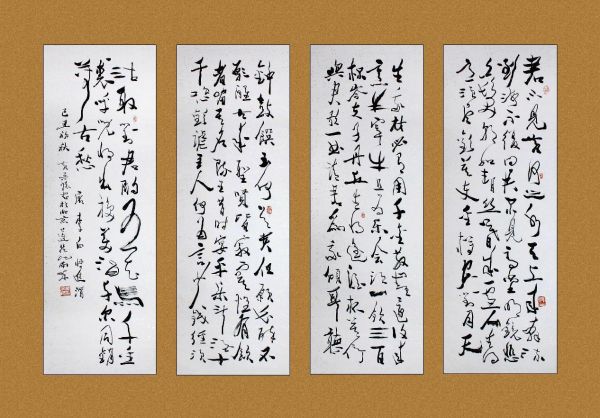 君不見黃河之水天上來奔流
到海不復回君不見高堂明鏡悲
白髮朝如青絲暮成雪人生得
意須盡歡莫使金樽空對月天
生我材必有用千金散盡還復來
烹羊宰牛且為樂會須一飲三百
杯岑夫子丹丘生將進酒杯莫停
與君歌一曲請君為我傾耳聽
鐘鼓饌玉何足貴但願長醉不
願醒古來聖賢皆寂寞惟有飲
者留其名陳王昔時宴平樂斗酒十
千恣歡謔主人何為言少錢徑須
沽取對君酌五花馬千金
裘呼兒將出換美酒與爾同銷
萬古愁 唐李白將進酒
己丑初秋